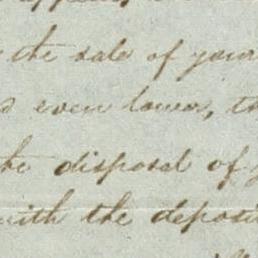 the sale of your
even lower, th
the disposal of y
with the deposi